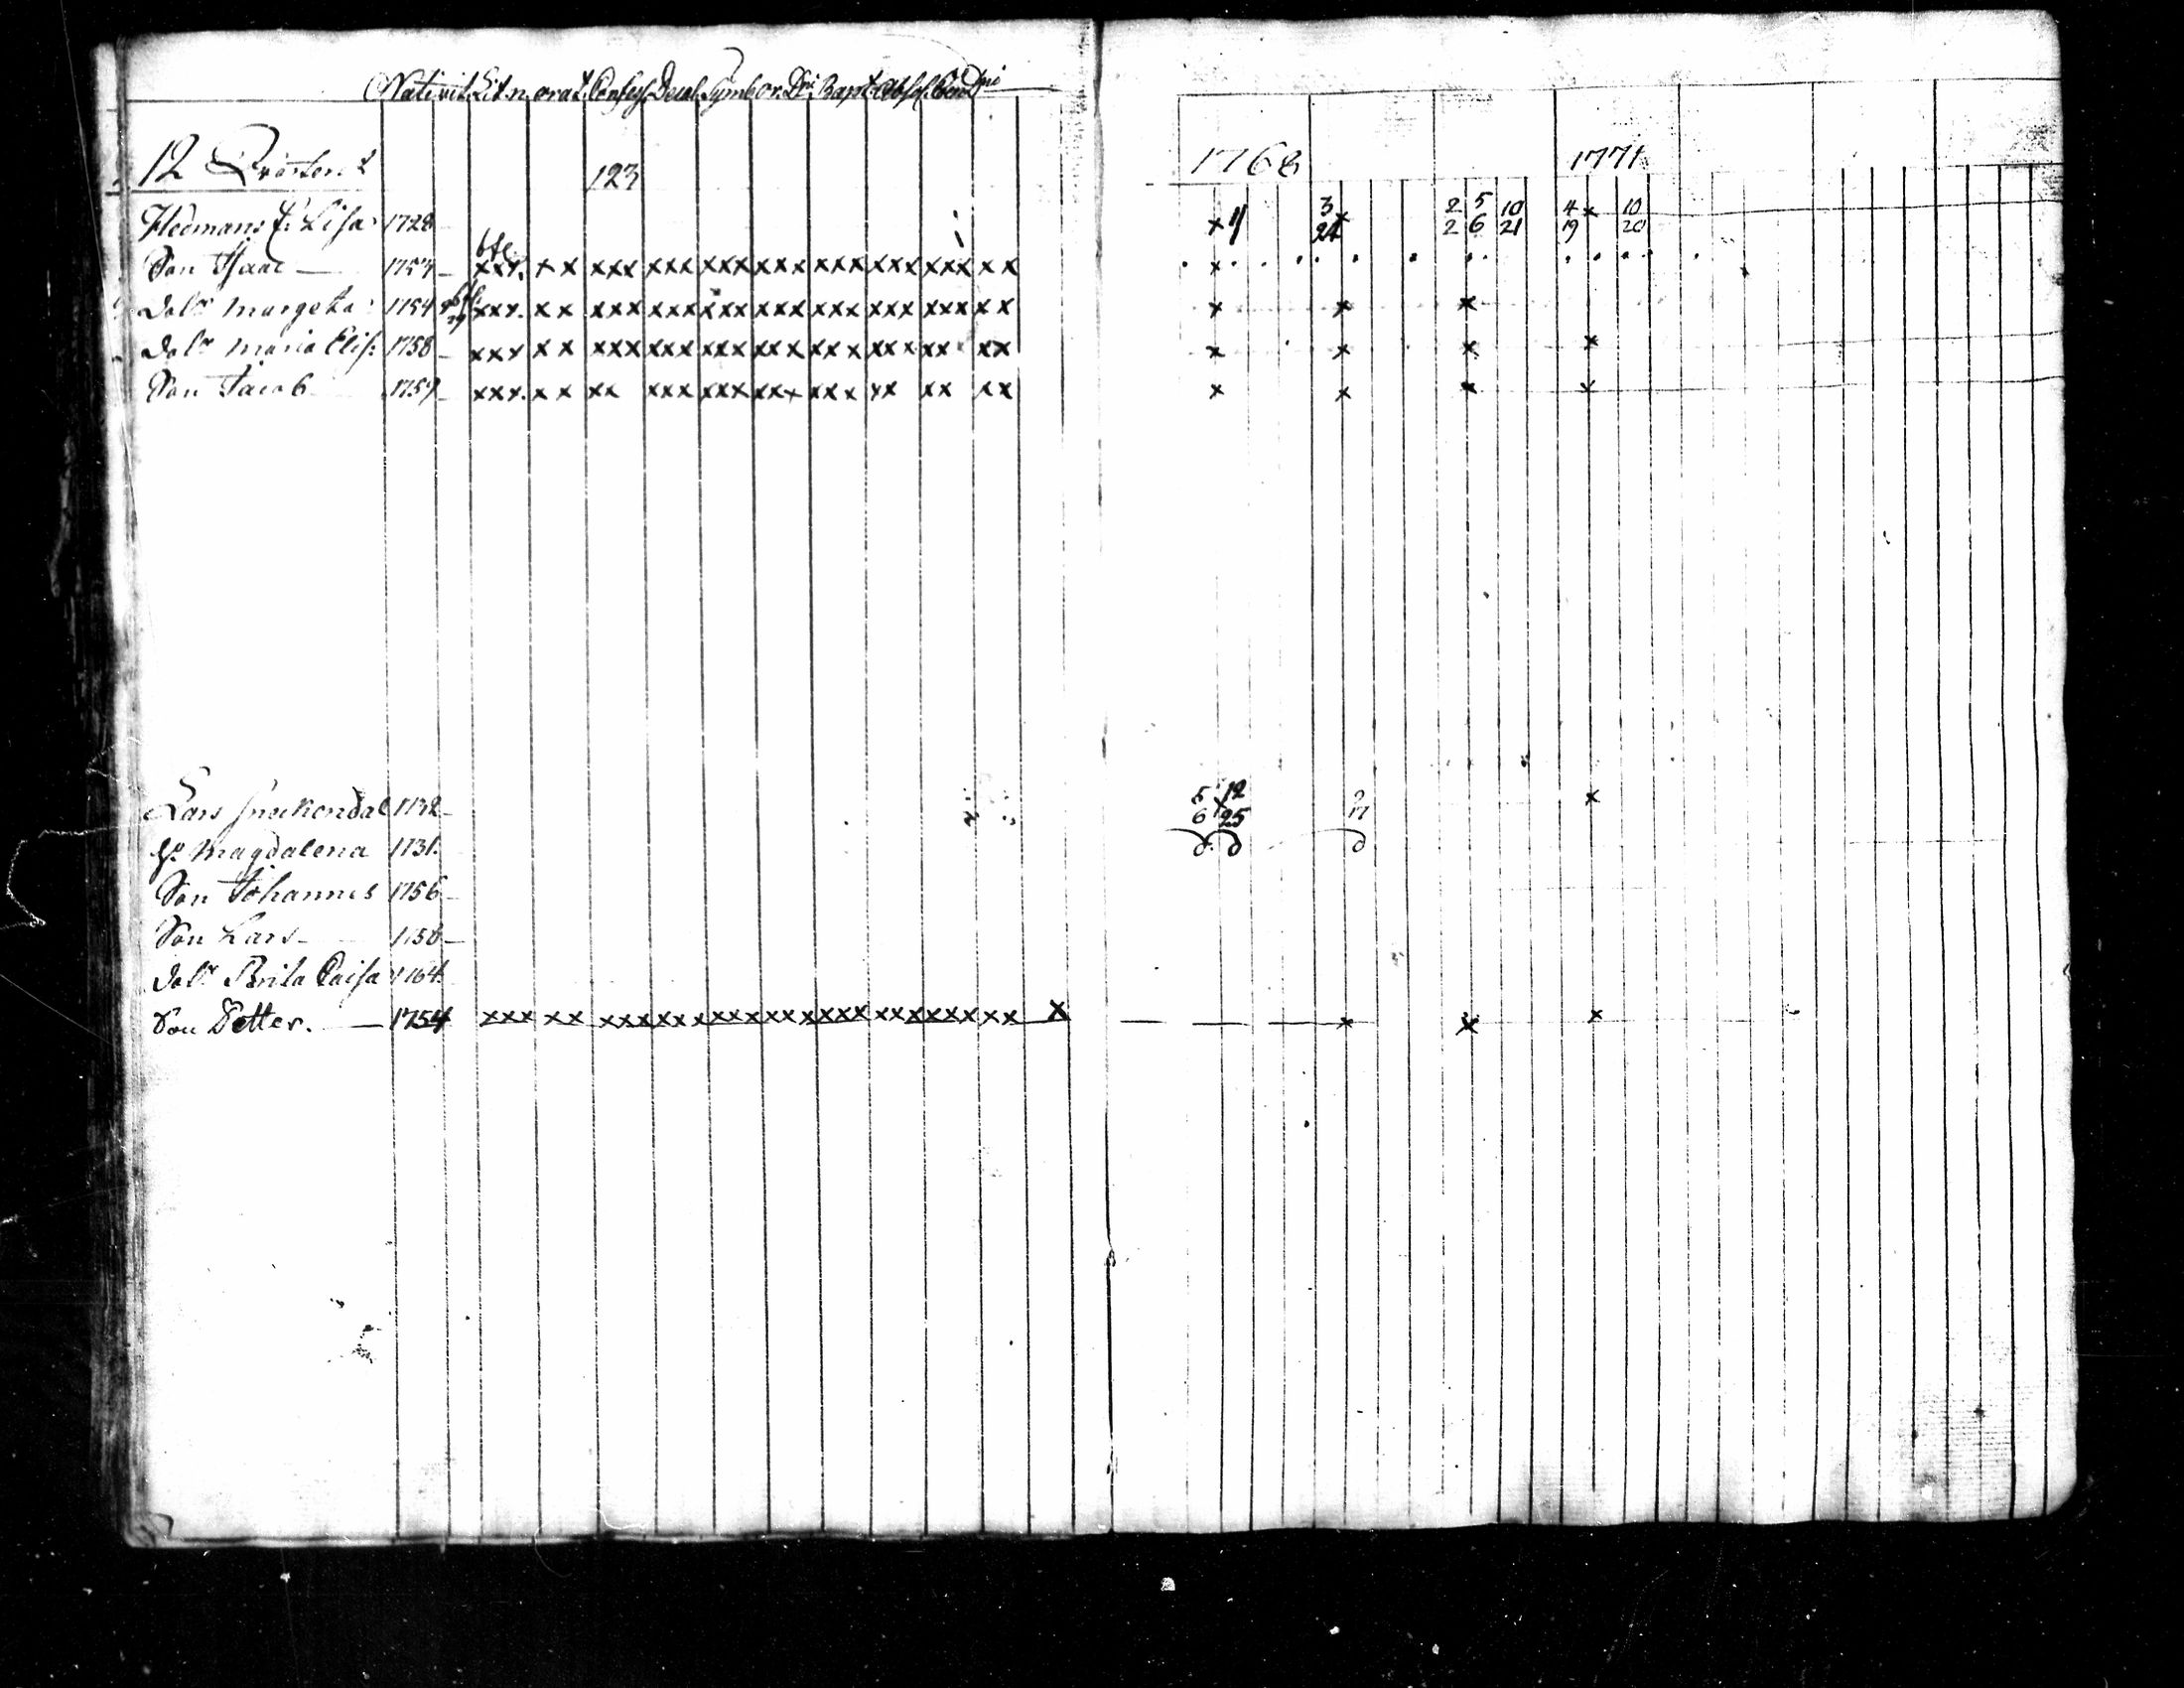 Nativit. Lit. n. orat. Confess. Decal. Symb. or. Dni. Bapt. Absol. Cœn. Dni
12 Qvarteret
123
1768 1771
Hedmans E. Lisa 1728 x 11 3 24 x 2 2 5 6 10 21 4 19 x 10 20
Son Isaac 1757 xxx. xx xxx xxx xxx xxx xxx xxx xxx xx x
Dotr Margeta 1754 xxx. xx xxx xxx xxx xxx xxx xxx xxx xx x x x
Dotr Maria Elis: 1758 xxx xx xxx xxx xxx xxx xxx xxx xx xx x x x x
Son Jacob 1759 xxx. xx xx xxx xxx xxx xxx xx xx xx x x x x
Lars 1732 5 6 x 12 25 17 x
H. Magdalena 1731. d. d d
Son Johannes 1756
Son Lars 1758
Dotr Brita Caisa 1764
Son Petter. 1754 xxx xx xxx xxx xxx xxx xxx xxx xxx xx X x x x